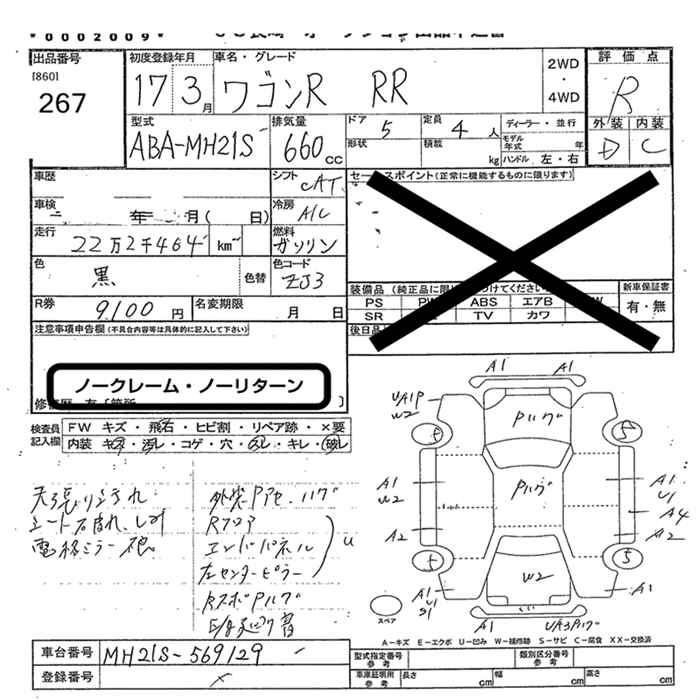 *0002009*
出品番号
[860]
267
初度登録年月
17 3月
車名・グレード
ワゴンR RR
2WD
・
4WD
評価点
R
型式
ABA-MH21S
排気量
660cc
ドア
5
形状
定員
4人
積載
kg
ディーラー・並行
モデル年式 年
ハンドル 左・右
外装 内装
D C
車歴
シフト
CAT
車検
年 月( 日)
冷房
A/C
走行
22万2千464 km
燃料
ガソリン
色
黒
色替
色コード
ZJ3
R券
9,100円
名変期限
月 日
セールスポイント(正常に機能するものに限ります)
新車保証書
有・無
PS ABS エアB
SR TV カワ
注意事項申告欄(不具合内容等は具体的に記入して下さい)
ノークレーム・ノーリターン
検査員記入欄
FW キズ・飛石・ヒビ割・リペア跡・×要
内装 キズ・汚レ・コゲ・穴・スレ・キレ・破レ
天張リシミ汚れ
電格ミラー
Rフロア
エンドパネル
左センターピラー
U
A1 A1
UA1P
W2
Pハゲ
5 5
A1
W2
Pハゲ
A1
U1
A4
A2
A2
5 5
W2
A1
U1
S1
A1
スペア
A1
UA3Pハゲ
A-キズ E-エクボ U-凹み W-補修跡 S-サビ C-腐食 XX-交換済
車台番号
MH21S-569129
登録番号
型式指定番号
参考
類別区分番号
参考
車庫証明用
参考
長さ cm
幅 cm
高さ cm